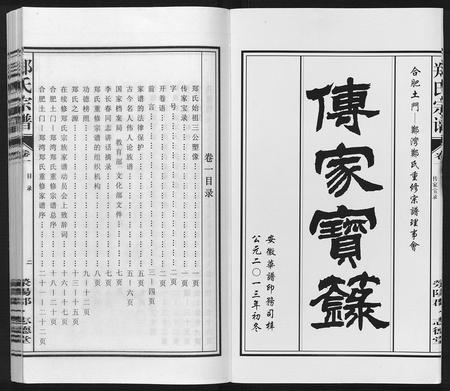 郑氏宗谱 卷一 传家宝录 荥阳郡 志德堂
合肥土門—鄭灣鄭氏重修宗譜理事會
傳家寶籙
安徽華譜印務司梓
公元二〇一三年初冬
卷一目录
郑氏始祖三公塑像……一页
传家宝录……一页
字号……一页
开卷语……页
前言……页
家谱的法律保护……五页
古今名人伟人论族谱……五—六页
国家档案局 教育部 文化部文件……七页
李长春同志讲话摘录……七页
郑氏重修宗谱的组织机构……八页
功德榜照……九—十二页
郑氏之源……十三—十五页
在续修郑氏宗族家谱动员会上致辞词……十六—十七页
合肥土门—郑湾郑氏重修宗谱总序……十八—二十页
合肥土门—郑湾郑氏重修家谱序……二十一—二十二页
郑氏宗谱 卷一 目录 二 荥阳郡 志德堂